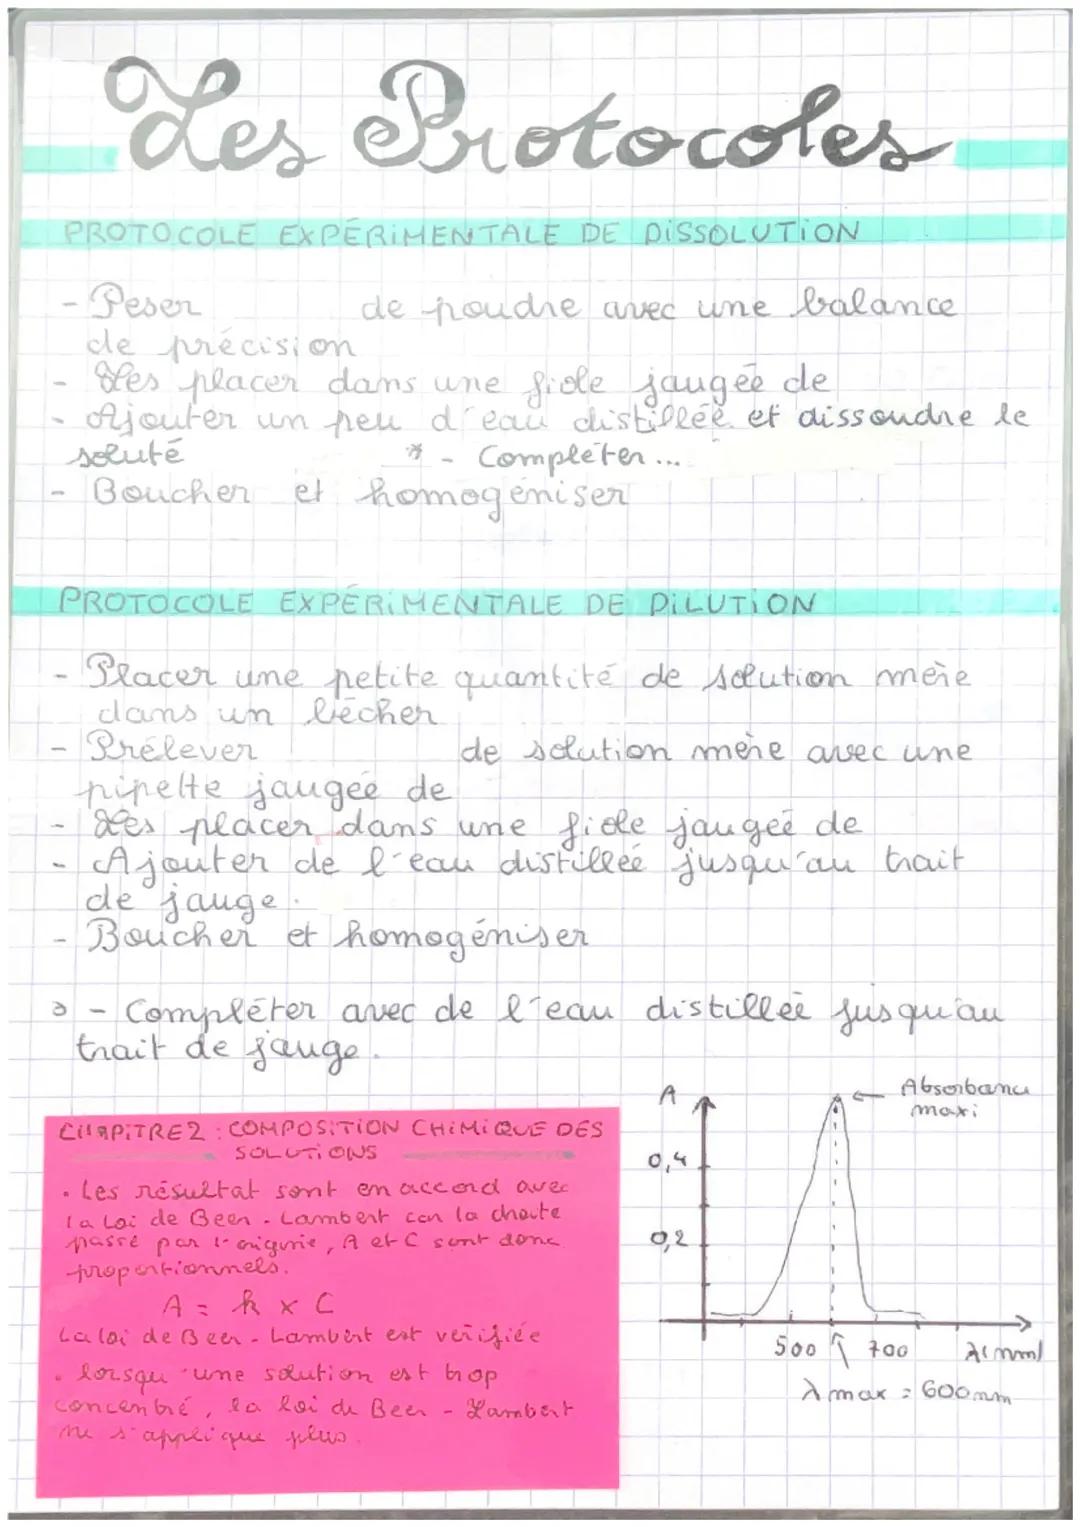 Les Protocoles
PROTOCOLE EXPÉRIMENTALE DE DISSOLUTION
- Peser de poudre avec une balance
de précision
- Les placer dans une fiole jaugée de
- Ajouter un peu d'eau distillée et dissoudre le
soluté * - Compléter...
- Boucher et homogéniser
PROTOCOLE EXPÉRIMENTALE DE DILUTION
- Placer une petite quantité de solution mère
dans un bécher
- Prélever de solution mère avec une
pipette jaugée de
- Les placer dans une fiole jaugée de
- Ajouter de l'eau distillée jusqu'au trait
de jauge.
- Boucher et homogéniser
- Compléter avec de l'eau distillée jusqu'au
trait de jauge.
CHAPITRE 2 : COMPOSITION CHIMIQUE DES
SOLUTIONS
• Les résultat sont en accord avec
la Loi de Beer - Lambert car la droite
passe par l'origine, A et C sont donc
proportionnels.
A = k x C
La loi de Beer - Lambert est vérifiée
• lorsqu'une solution est trop
concentré, la loi de Beer - Lambert
ne s'applique plus.
A
Absorbance
maxi
0,4
0,2
500 700 λ(nm)
λ max = 600nm